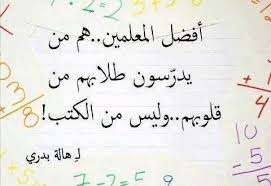 أفضل المعلمين..هم من
يدرّسون طلابهم من
قلوبهم..وليس من الكتب!
لـ هالة بدري
7-2=2
3
+5
10
-5
5
7-2=5